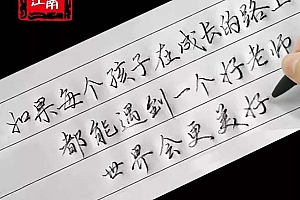 江南
如果每个孩子在成长的路上
都能遇到一个好老师
世界会更美好